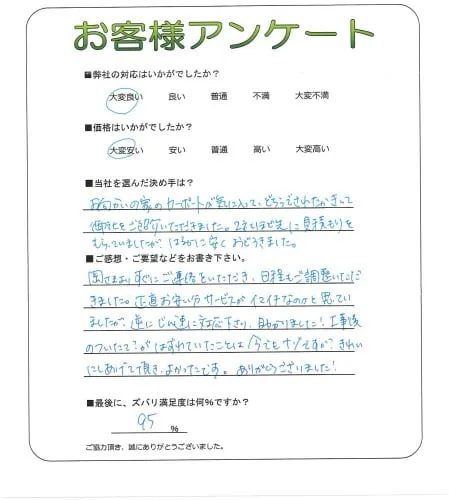 お客様アンケート
■弊社の対応はいかがでしたか?
大変良い 良い 普通 不満 大変不満
■価格はいかがでしたか?
大変安い 安い 普通 高い 大変高い
■当社を選んだ決め手は?
お向かいの家のカーポートが気に入って、どちらでされたかきいて
御社をご紹介いただきました。2社ほど先に見積もりを
もらっていましたが、はるかに安くおどろきました。
■ご感想・ご要望などをお書き下さい。
すぐにご連絡をいただき、日程もご調整いただ
きました。正直お安い分サービスがイマイチなのかと思ってい
ましたが、逆にじん速に対応下さり、助かりました!工事後
のついたて?がはずれていたことは今でもナゾですが?きれい
にしあげて頂き、よかったです。ありがとうございました!
■最後に、ズバリ満足度は何%ですか?
95 %
ご協力頂き、誠にありがとうございました。